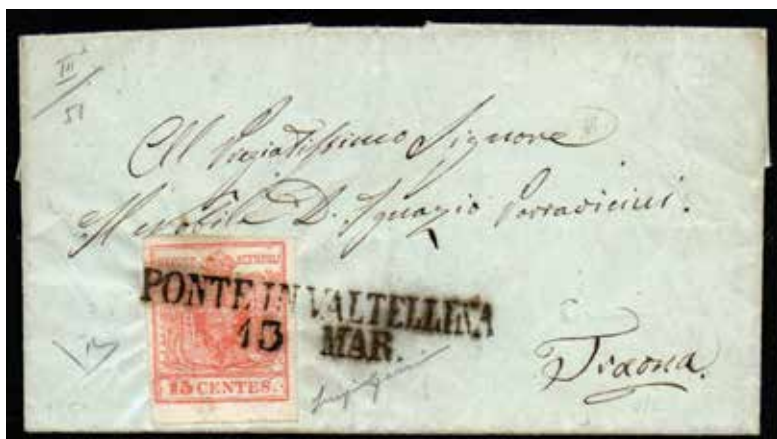 III
51
All Pregiatissimo Signore
Il Nobile D. Ignazio Parravicini.
PONTE IN VALTELLINA
13 MAR.
15 CENTES.
Traona.